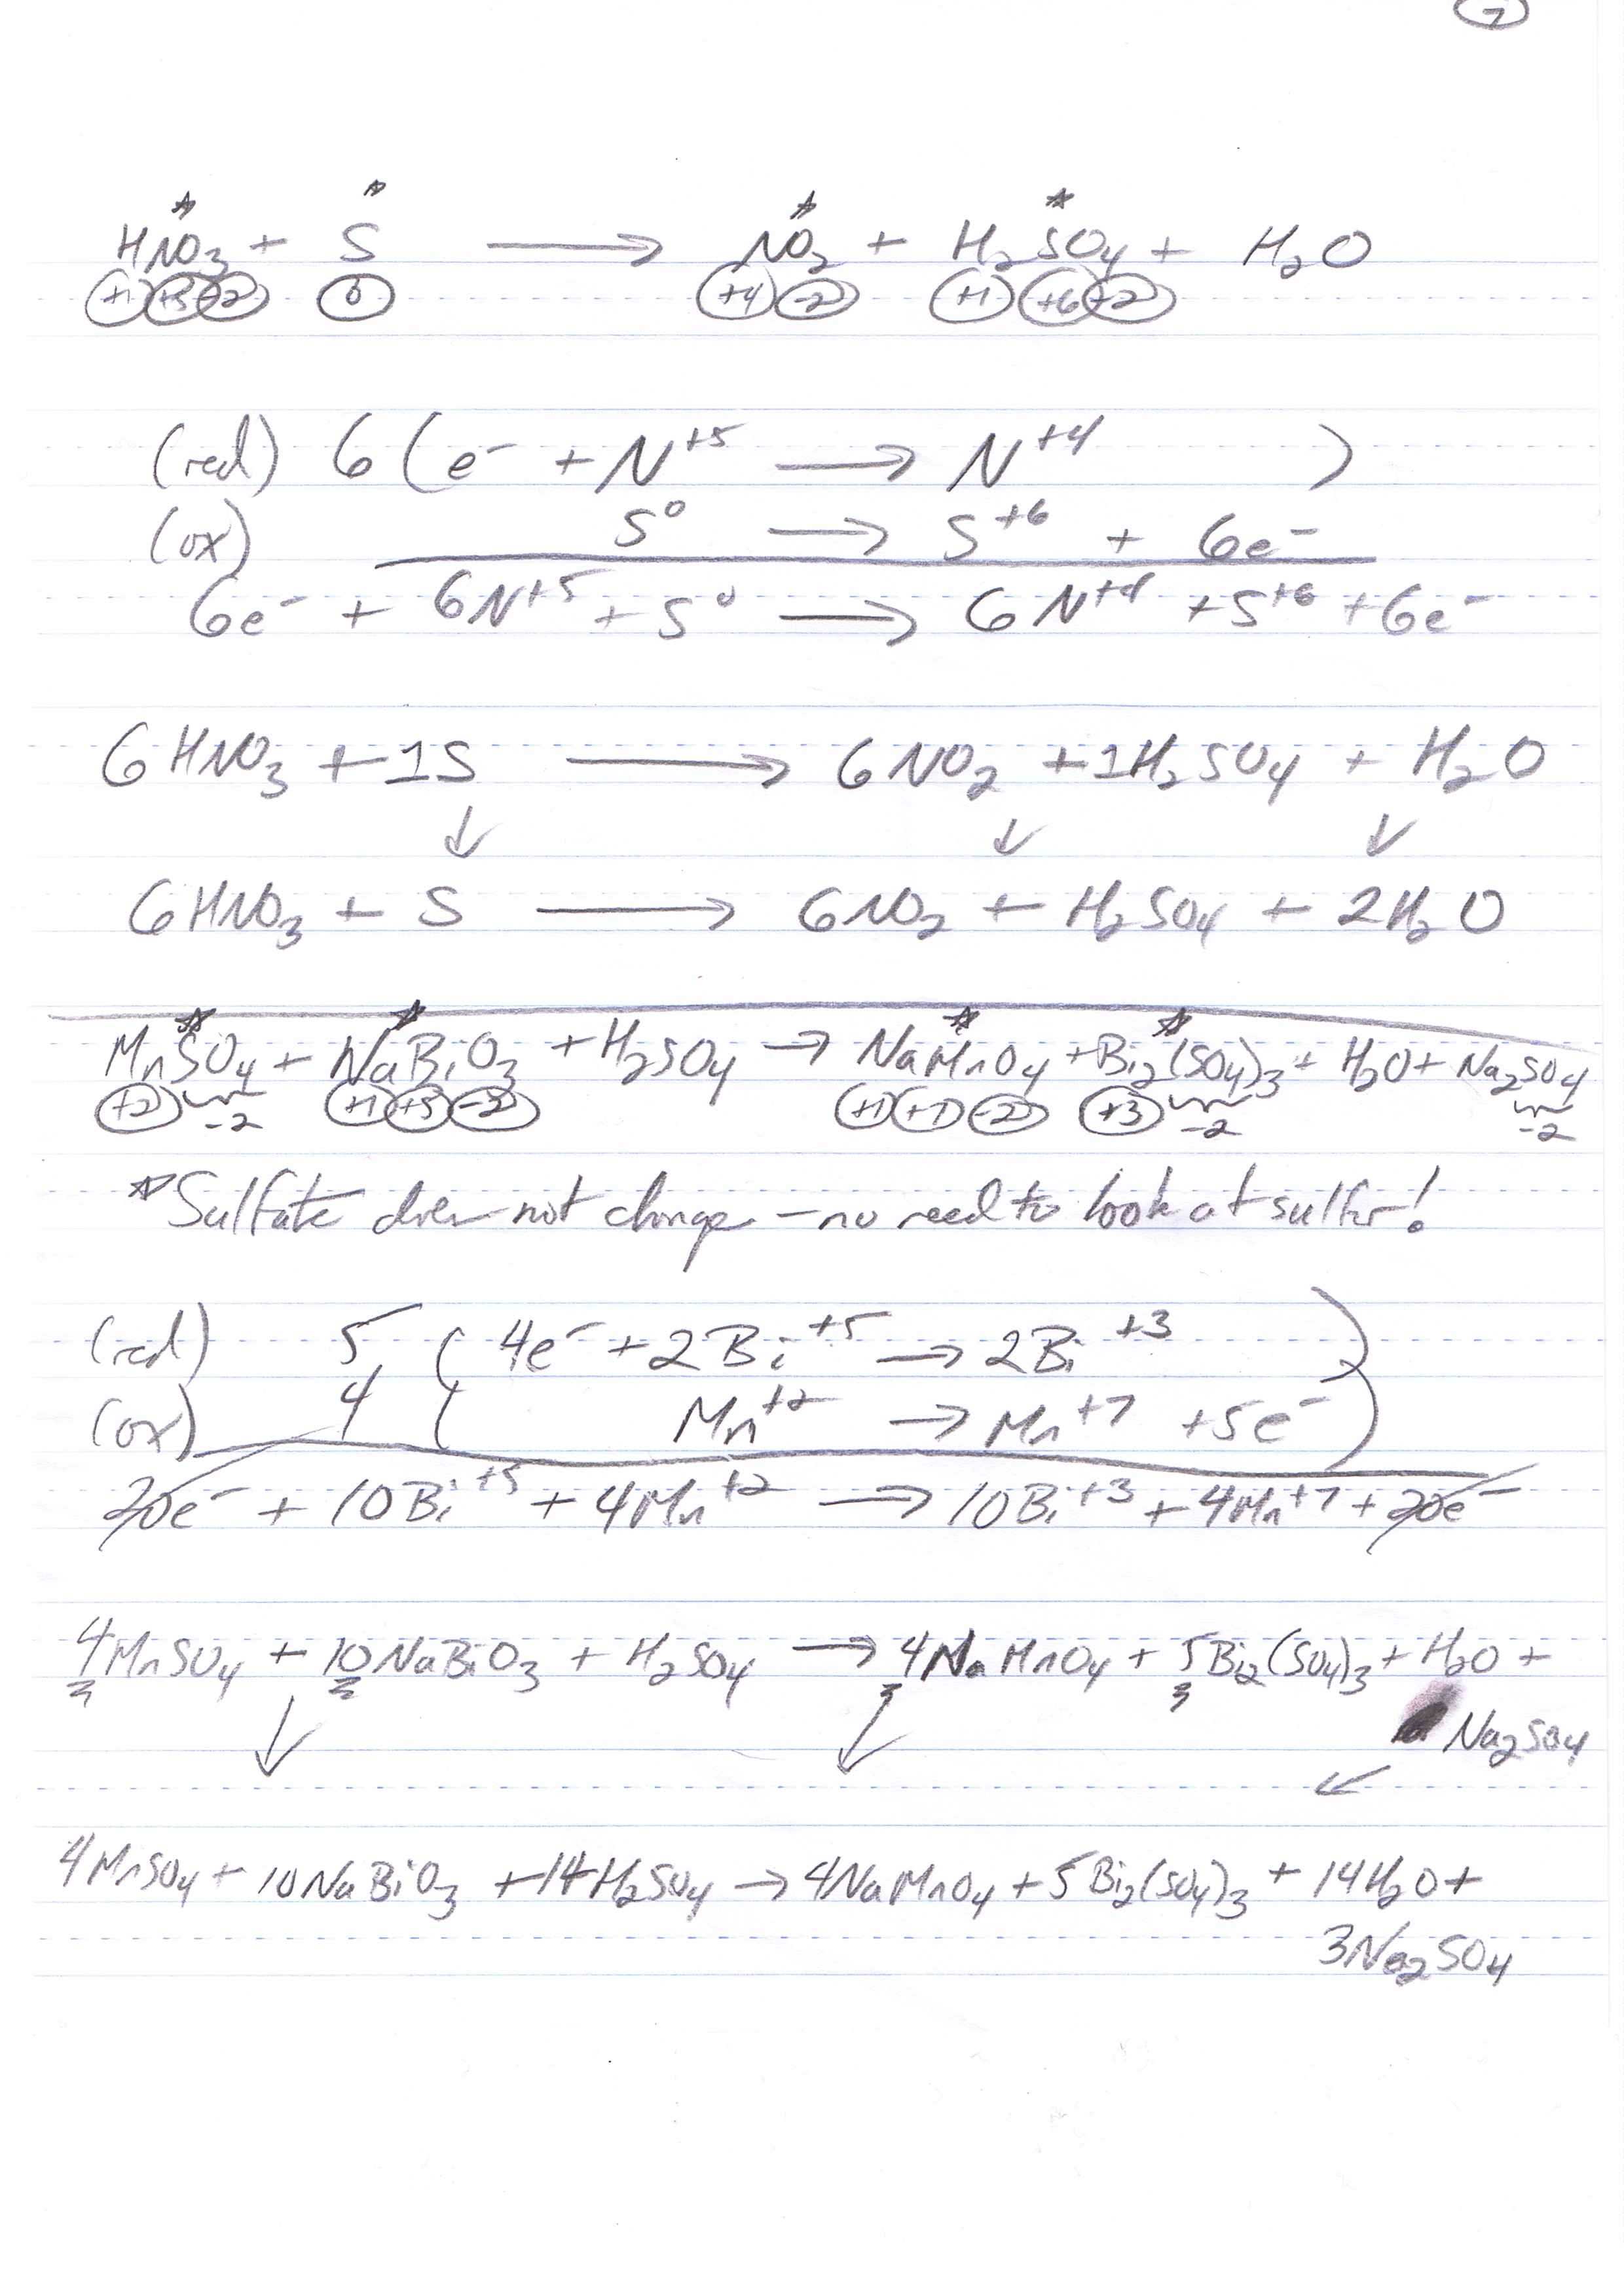 7
HNO₃ + S ⟶ NO₂ + H₂SO₄ + H₂O
+1 +5 -2 0 +4 -2 +1 +6 -2
(red) 6 ( e⁻ + N⁺⁵ ⟶ N⁺⁴ )
(ox) S⁰ ⟶ S⁺⁶ + 6e⁻
6e⁻ + 6N⁺⁵ + S⁰ ⟶ 6N⁺⁴ + S⁺⁶ + 6e⁻
6HNO₃ + 1S ⟶ 6NO₂ + 1H₂SO₄ + H₂O
↓ ↓ ↓
6HNO₃ + S ⟶ 6NO₂ + H₂SO₄ + 2H₂O
MnSO₄ + NaBiO₃ + H₂SO₄ → NaMnO₄ + Bi₂(SO₄)₃ + H₂O + Na₂SO₄
+2 -2 +1 +5 -2 +1 +7 -2 +3 -2 -2
*Sulfate does not change – no need to look at sulfur!
(red) 5 ( 4e⁻ + 2Bi⁺⁵ → 2Bi⁺³ )
(ox) 4 ( Mn⁺² → Mn⁺⁷ + 5e⁻ )
20e⁻ + 10Bi⁺⁵ + 4Mn⁺² → 10Bi⁺³ + 4Mn⁺⁷ + 20e⁻
4MnSO₄ + 10NaBiO₃ + H₂SO₄ → 4NaMnO₄ + 5Bi₂(SO₄)₃ + H₂O +
Na₂SO₄
↓ ↓ ↙
4MnSO₄ + 10NaBiO₃ + 14H₂SO₄ → 4NaMnO₄ + 5Bi₂(SO₄)₃ + 14H₂O +
3Na₂SO₄